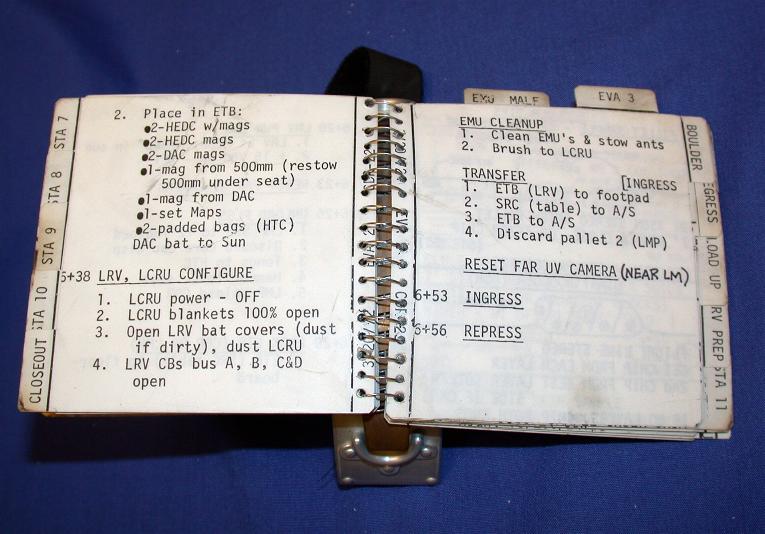 EMU MALF
EVA 3
STA 7
STA 8
STA 9
STA 10
CLOSEOUT
2. Place in ETB:
●2-HEDC w/mags
●2-HEDC mags
●2-DAC mags
●1-mag from 500mm (restow
500mm under seat)
●1-mag from DAC
●1-set Maps
●2-padded bags (HTC)
DAC bat to Sun
6+38 LRV, LCRU CONFIGURE
1. LCRU power - OFF
2. LCRU blankets 100% open
3. Open LRV bat covers (dust
if dirty), dust LCRU
4. LRV CBs bus A, B, C&D
open
EMU CLEANUP
1. Clean EMU's & stow ants
2. Brush to LCRU
TRANSFER [INGRESS
1. ETB (LRV) to footpad
2. SRC (table) to A/S
3. ETB to A/S
4. Discard pallet 2 (LMP)
RESET FAR UV CAMERA (NEAR LM)
6+53 INGRESS
6+56 REPRESS
BOULDER
EGRESS
LOAD UP
LRV PREP
STA 11